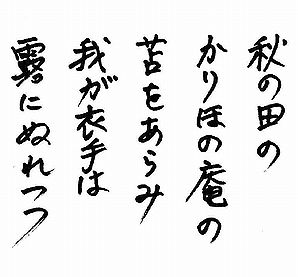 秋の田の
かりほの庵の
苫をあらみ
我が衣手は
露にぬれつつ